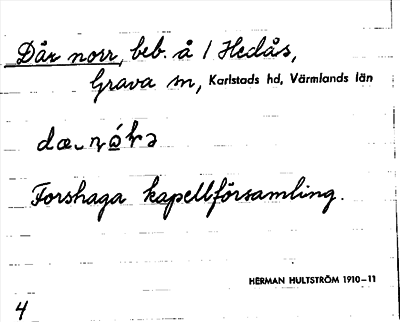 Där norr, beb. å / Hedås,
Grava sn, Karlstads hd, Värmlands län
Forshaga kapellförsamling.
HERMAN HULTSTRÖM 1910-11
4